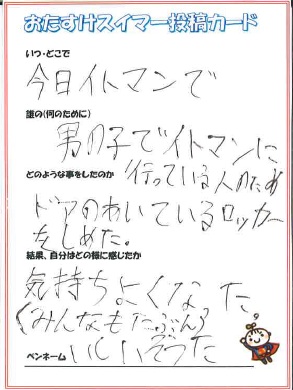 おたすけスイマー投稿カード
いつ・どこで
今日イトマンで
誰の(何のために)
男の子でイトマンに
行っている人のため
どのような事をしたのか
ドアのあいているロッカー
をしめた。
結果、自分はどの様に感じたか
気持ちよくなった
(みんなもたぶん)
ペンネーム